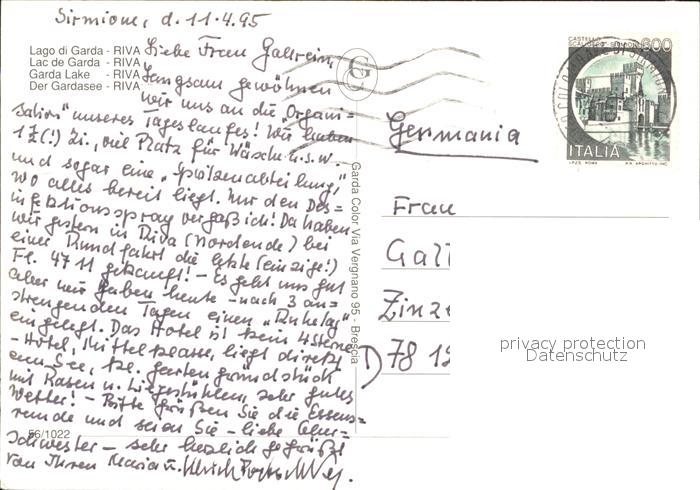 Sirmione, d. 11.4.95
Lago di Garda - RIVA
Lac de Garda - RIVA
Garda Lake - RIVA
Der Gardasee - RIVA
G
Liebe Frau
Langsam gewöhnen
wir uns an die Organi=
sation unseres Tageslaufes! Wir haben
1 1/2 (!) Zi., viel Platz für Wäsche u.s.w.
und sogar eine "Spitzenabteilung",
wo alles bereit liegt. Nur den Des=
infektionsspray vergaß ich! Da haben
wir gestern in Riva (Nordende) bei
einer Rundfahrt die letzte (einzige!)
Fl. 4711 gekauft! - Es geht uns gut
aber wir haben heute - nach 3 an=
strengenden Tagen einen "Ruhetag"
eingelegt. Das Hotel ist kein 4 Sterne
- Hotel, Mittelklasse, liegt direkt
am See, kl. Gartengrundstück
mit Rasen u. Liegestühlen, sehr gutes
Wetter! - Bitte grüßen Sie die Essens=
runde und seien Sie - liebe
schwester - sehr herzlich gegrüßt
von Ihren Maria u. Ulrich
56/1022
Garda Color Via Vergnano 95 - Brescia
CASTELLO
SCALIGERO - SIRMIONE
600
ITALIA
I.P.Z.S. ROMA
Germania
Frau
Gall
Zinz
D 78 19
privacy protection
Datenschutz